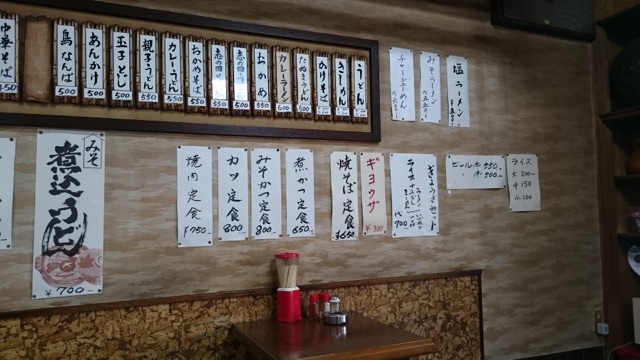 うどん
きしめん
かけそば
たぬきうどん
カレーラーメン
600
おかめ
550
志の田
500
志の田
550
おかめそば
550
カレーうどん
550
親子うどん
550
玉子とじ
500
あんかけ
500
鳥なんば
500
中華そば
450
塩ラーメン
みそラーメン
チャーシューめん
みそ
煮込うどん
¥700-
焼肉定食
¥750.
カツ定食
800
みそかつ定食
800
煮かつ定食
850
焼そば定食
¥650
ギョウザ
¥300
ぎょうざセット
ライス
ラーメン
700
ビール 大 550
〃 中 500-
ライス
大 200-
中 150
小 100